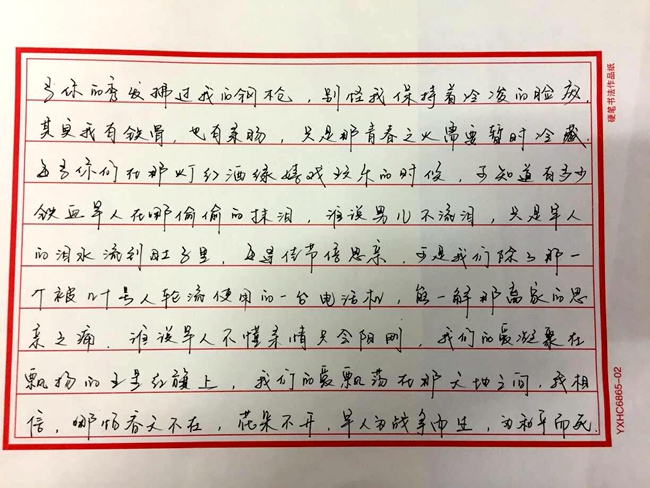 当你的秀发拂过我的钢枪，别怪我保持着冷峻的脸庞
其实我有铁骨，也有柔肠，只是那青春之火需要暂时冷藏.
每当你们在那灯红酒绿嬉戏玩乐的时候，可知道有多少
铁血军人在哪偷偷的抹泪，谁说男儿不流泪，只是军人
的泪水流到肚子里，每是佳节倍思亲，可是我们除了那一
个被 号人轮流使用的一台电话机，能一解那离家的思
亲之痛. 谁说军人不懂柔情只会阳刚，我们的爱凝聚在
飘扬的五星红旗上，我们的爱飘荡在那天地之间，我相
信，哪怕春天不在，花朵不开，军人为战争而生，为和平而死.
硬笔书法作品纸
YXHC6865-02